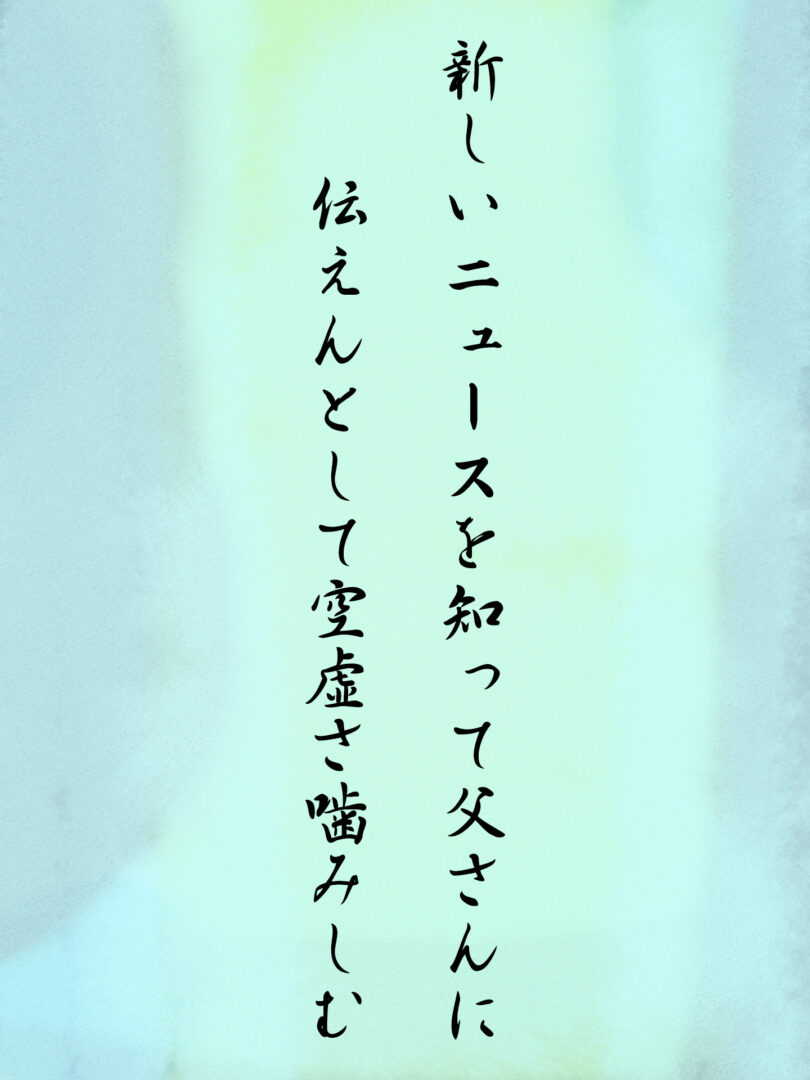 新しいニュースを知って父さんに
伝えんとして空虚さ噛みしむ